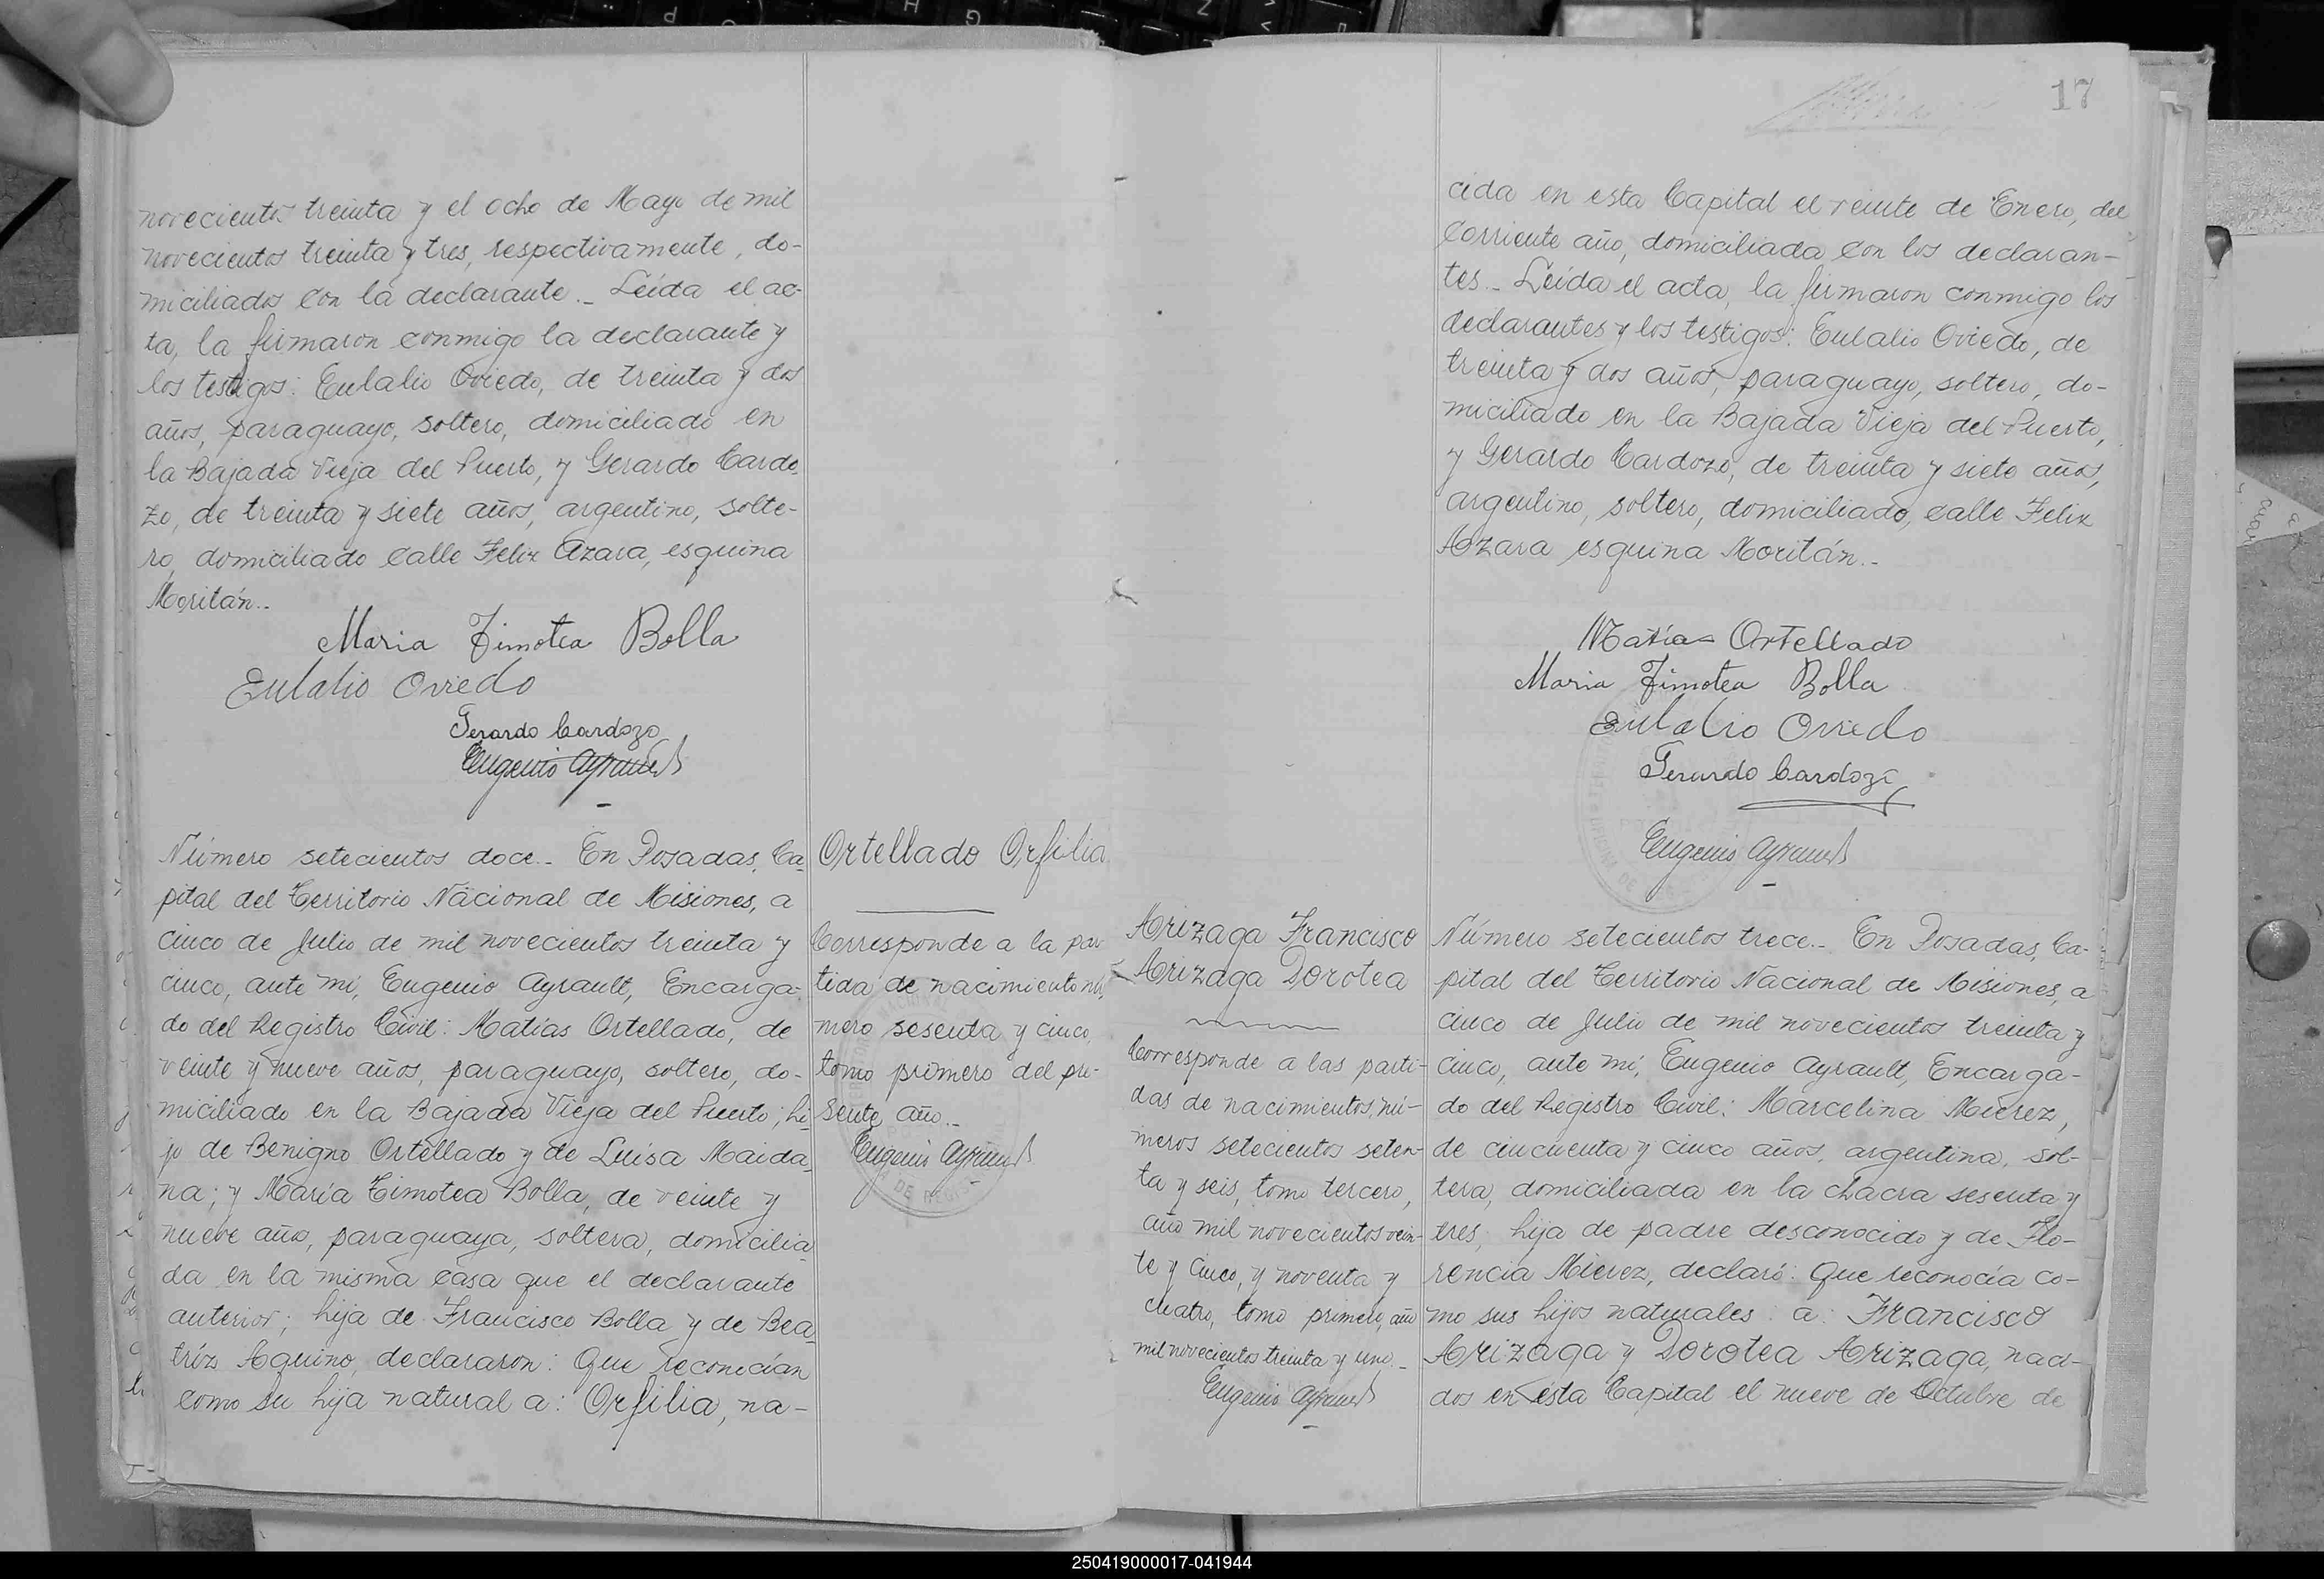 novecientos treinta y el ocho de Mayo de mil
novecientos treinta y tres, respectivamente, do-
miciliados con la declarante._ Leida el ac-
ta, la firmaron conmigo la declarante y
los testigos: Eulalio Oviedo, de treinta y dos
años, paraguayo, soltero, domiciliado en
la Bajada Vieja del Puerto, y Gerardo Cardo
zo, de treinta y siete años, argentino, solte-
ro, domiciliado calle Felix Azara, esquina
Moritán..
Maria Timotea Bolla
Eulalio Oviedo
Gerardo Cardozo
Eugenio Ayrault
Número setecientos doce._ En Posadas, Ca-
pital del Territorio Nacional de Misiones, a
cinco de Julio de mil novecientos treinta y
cinco, ante mi, Eugenio Ayrault, Encarga-
do del Registro Civil: Matías Ortellado, de
veinte y nueve años, paraguayo, soltero, do-
miciliado en la Bajada Vieja del Puerto; hi-
jo de Benigno Ortellado y de Luisa Maida-
na; y María Timotea Bolla, de veinte y
nueve años, paraguaya, soltera, domicilia
da en la misma casa que el declarante
anterior; hija de Francisco Bolla y de Bea-
tríz Aquino, declararon: Que reconocían
como su hija natural a: Orfilia, na-
Ortellado Orfilia
Corresponde a la par-
tida de nacimiento nú-
mero sesenta y cinco,
tomo primero del pre-
sente año._
Eugenio Ayrault
17
cida en esta Capital el veinte de Enero, del
corriente año, domiciliada con los declaran-
tes._ Leida el acta, la firmaron conmigo los
declarantes y los testigos: Eulalio Oviedo, de
treinta y dos años, paraguayo, soltero, do-
miciliado en la Bajada Vieja del Puerto,
y Gerardo Cardozo, de treinta y siete años,
argentino, soltero, domiciliado, calle Felix
Azara esquina Moritán..
Matías Ortellado
Maria Timotea Bolla
Eulalio Oviedo
Gerardo Cardozo
Eugenio Ayrault
Arizaga Francisco
Arizaga Dorotea
Corresponde a las parti-
das de nacimientos, nú-
meros setecientos seten-
ta y seis, tomo tercero,
año mil novecientos vein-
te y cinco, y noventa y
cuatro, tomo primero, año
mil novecientos treinta y uno._
Eugenio Ayrault
Número setecientos trece._ En Posadas, Ca-
pital del Territorio Nacional de Misiones, a
cinco de Julio de mil novecientos treinta y
cinco, ante mi, Eugenio Ayrault, Encarga-
do del Registro Civil: Marcelina Mierez,
de cincuenta y cinco años, argentina, sol-
tera, domiciliada en la chacra sesenta y
tres; hija de padre desconocido y de Flo-
rencia Mierez, declaró: Que reconocía co-
mo sus hijos naturales a: Francisco
Arizaga y Dorotea Arizaga, naci-
dos en esta Capital el nueve de Octubre de
250419000017-041944